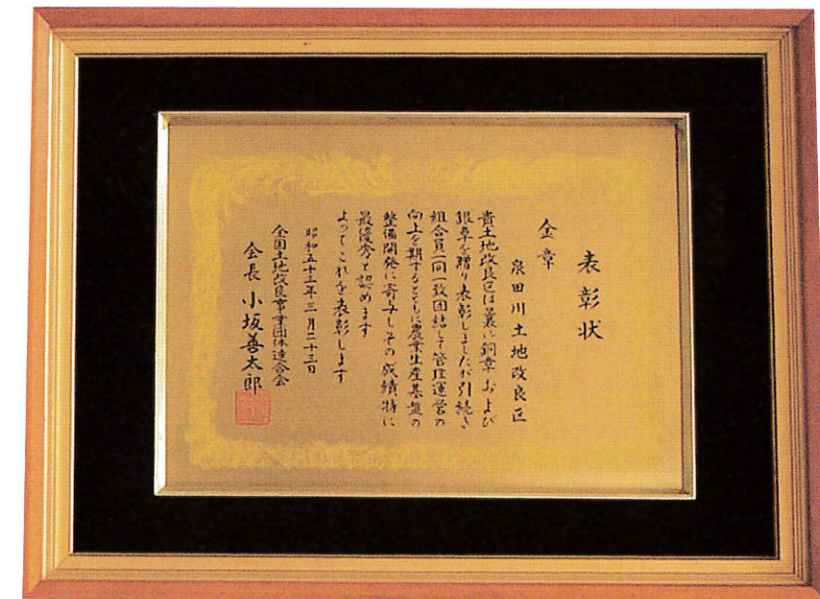 表彰状
金章
泉田川土地改良区
貴土地改良区は曩に銅章および
銀章を贈り表彰しましたが引続き
組合員一同一致団結して管理運営の
向上を期するとともに農業生産基盤の
整備開発に寄与しその成績特に
最優秀と認めます
よってこれを表彰します
昭和五十三年三月二十三日
全国土地改良事業団体連合会
会長 小坂善太郎